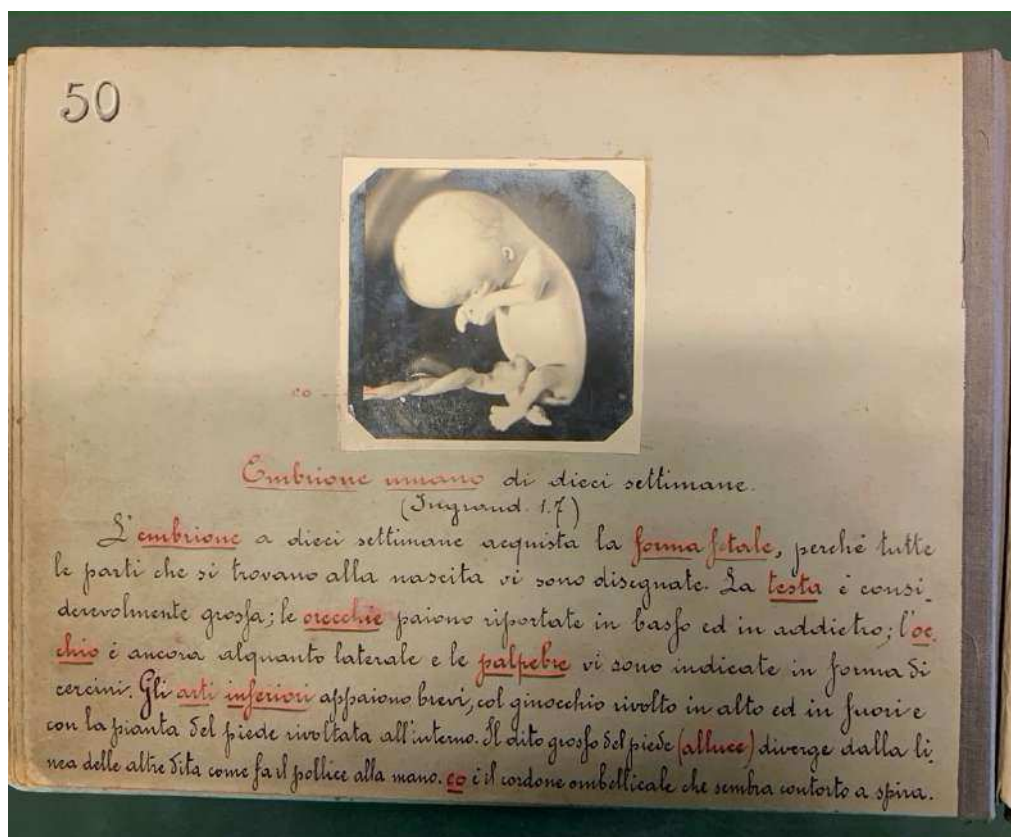 50
co
Embrione umano di dieci settimane.
(Ingrand. 1.7)
L'embrione a dieci settimane acquista la forma fetale, perché tutte
le parti che si trovano alla nascita vi sono disegnate. La testa è consi-
derevolmente grossa; le orecchie paiono riportate in basso ed in addietro; l'oc-
chio è ancora alquanto laterale e le palpebre vi sono indicate in forma di
cercini. Gli arti inferiori appaiono brevi, col ginocchio rivolto in alto ed in fuori e
con la pianta del piede rivoltata all'interno. Il dito grosso del piede (alluce) diverge dalla li-
nea delle altre dita come fa il pollice alla mano. co è il cordone ombellicale che sembra contorto a spira.